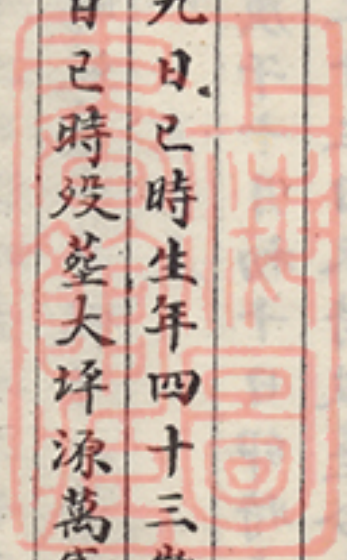 日巳時生年四十三
日巳時殁塟大坪源萬